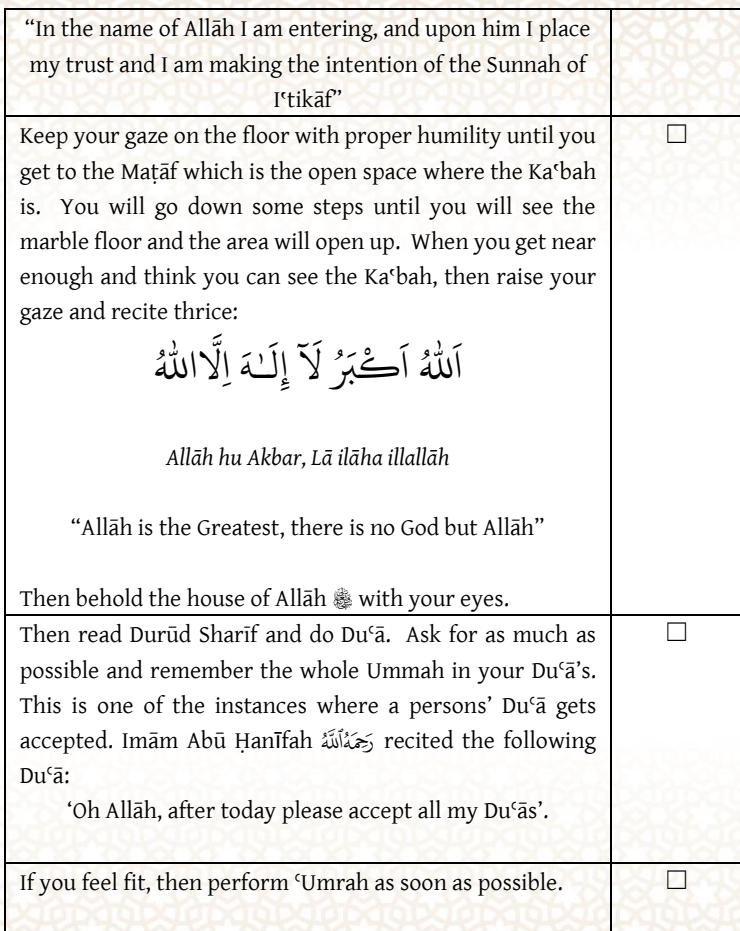 “In the name of Allāh I am entering, and upon him I place
my trust and I am making the intention of the Sunnah of
Iʿtikāf”
☐
Keep your gaze on the floor with proper humility until you
get to the Maṭāf which is the open space where the Kaʿbah
is. You will go down some steps until you will see the
marble floor and the area will open up. When you get near
enough and think you can see the Kaʿbah, then raise your
gaze and recite thrice:
اَللّٰهُ اَكْبَرُ لَآ إِلَـٰهَ اِلَّااللّٰهُ
Allāh hu Akbar, Lā ilāha illallāh
“Allāh is the Greatest, there is no God but Allāh”
Then behold the house of Allāh ﷻ with your eyes.
☐
Then read Durūd Sharīf and do Duʿā. Ask for as much as
possible and remember the whole Ummah in your Duʿā’s.
This is one of the instances where a persons’ Duʿā gets
accepted. Imām Abū Ḥanīfah رَحِمَهُ ٱللَّهُ recited the following
Duʿā:
‘Oh Allāh, after today please accept all my Duʿās’.
☐
If you feel fit, then perform ʿUmrah as soon as possible.